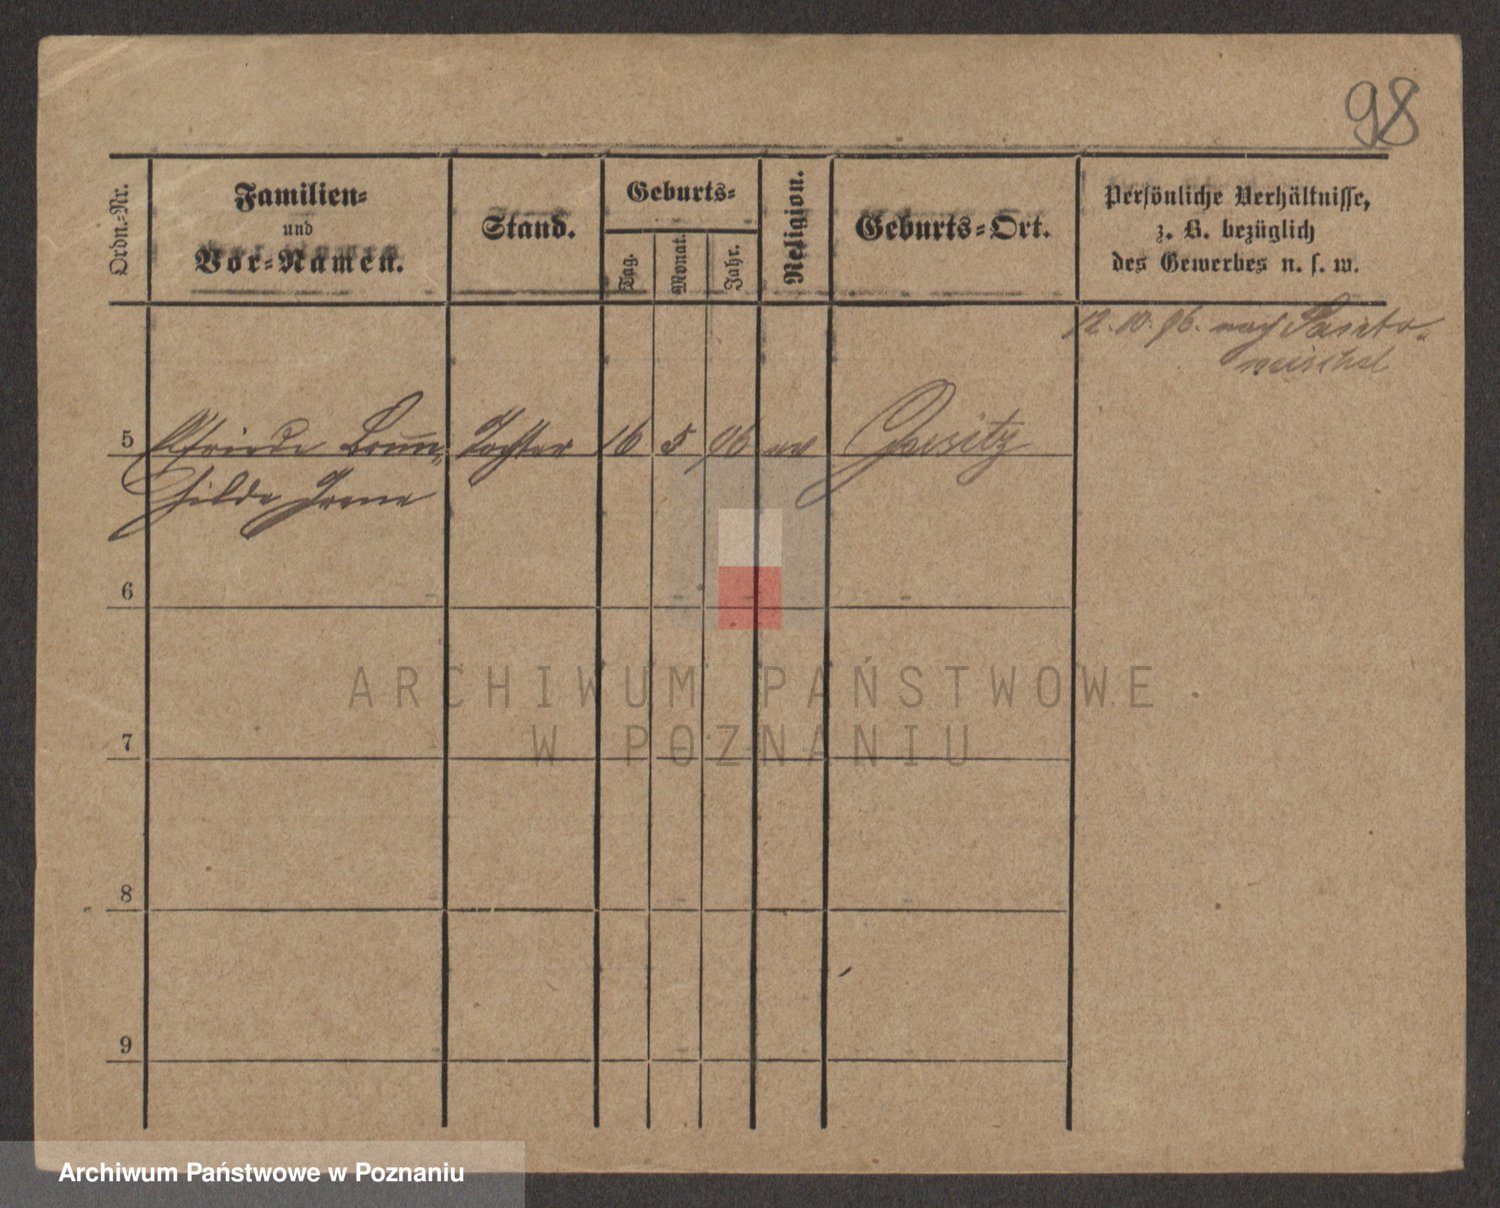 98
Ordn.-Nr.
Familien-
und
Vor-Namen.
Stand.
Geburts-
Tag.
Monat.
Jahr.
Religion.
Geburts-Ort.
Persönliche Verhältnisse,
z. B. bezüglich
des Gewerbes u. s. w.
12. 10. 96. nach Santo-
mischel
5 Elfriede Brun- Tochter 16 5 96 ev Gorsitz
hilde Irene
6
7
8
9
ARCHIWUM PAŃSTWOWE
W POZNANIU
Archiwum Państwowe w Poznaniu